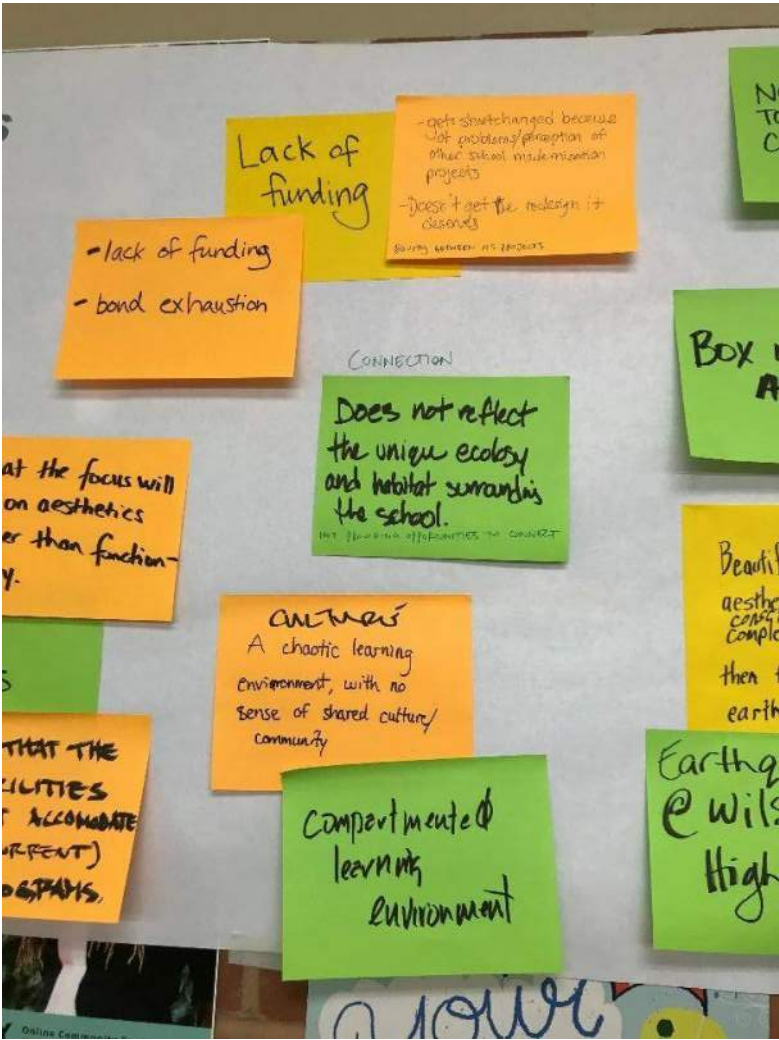 S
Lack of
funding
- gets shortchanged because
of problems/perception of
other school modernization
projects
- Doesn't get the redesign it
deserves
EQUITY BETWEEN HS PROJECTS
NO
TO
C
- lack of funding
- bond exhaustion
CONNECTION
Does not reflect
the unique ecology
and habitat surrounding
the school.
NOT PROVIDING OPPORTUNITIES TO CONNECT
Box
A
at the focus will
on aesthetics
er than function-
y.
Beautif
aesthe
comple
then t
earth
S
CULTURE
A chaotic learning
environment, with no
sense of shared culture/
community
THAT THE
CILITIES
T ACCOMODATE
URRENT)
OGRAMS.
Compartmented
learning
environment
Earthq
@ Wils
High
Online Community
your